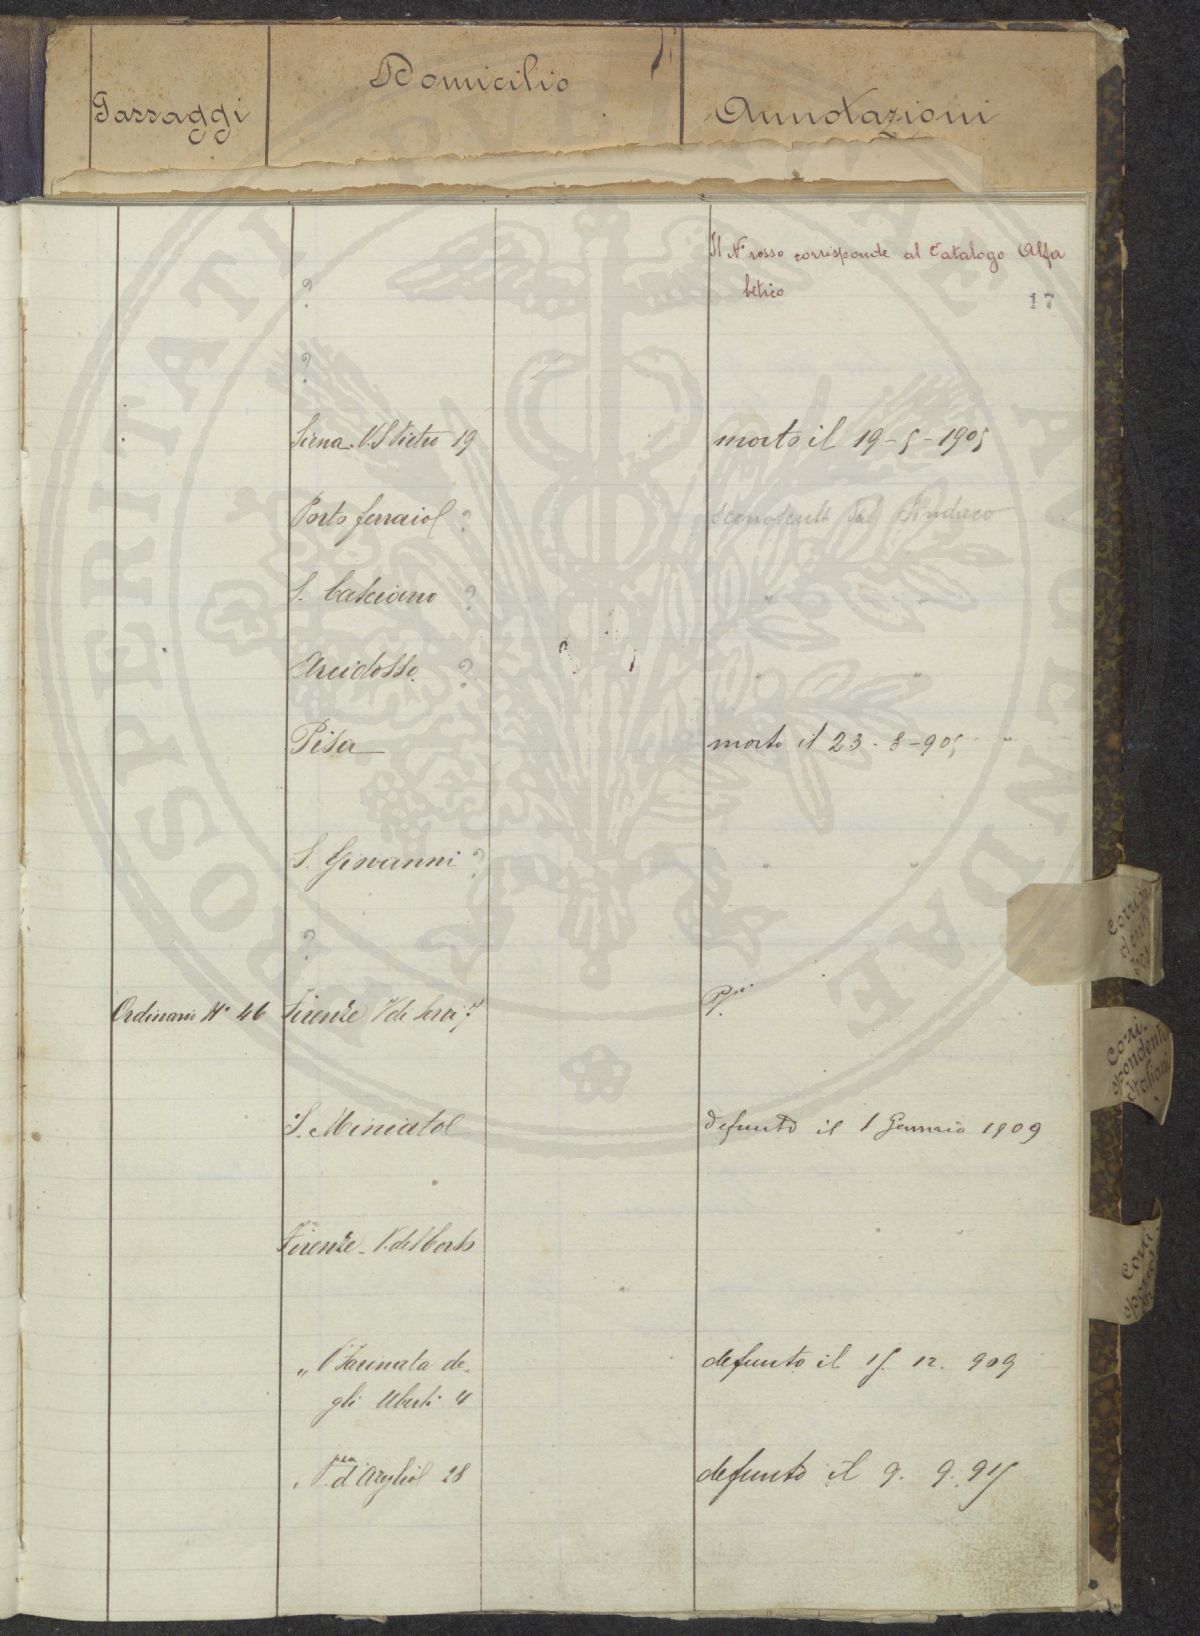 Passaggi
Domicilio
Annotazioni
Il N° rosso corrisponde al Catalogo Alfa
betico
17
?
?
Siena V. S. Pietro 19
morto il 19-5-1905
Portoferraio ?
sconosciuto dal Sindaco
S. Casciano ?
" "
Arcidosso ?
" "
Pisa
morto il 23-8-905 "
S. Giovanni ?
" "
?
Ordinario N° 46 Firenze V. de Servi
S. Miniato
defunto il 1 Gennaio 1909
Firenze - V.
" V. Farinata de-
gli Uberti 4
defunto il 15. 12. 909
pza
d'Azeglio 28
defunto il 9. 9. 915
Corrispon
denti
Corri-
spondenti
Italiani
Corri
spond
PROSPERITATI PUBLICAE AUGENDAE